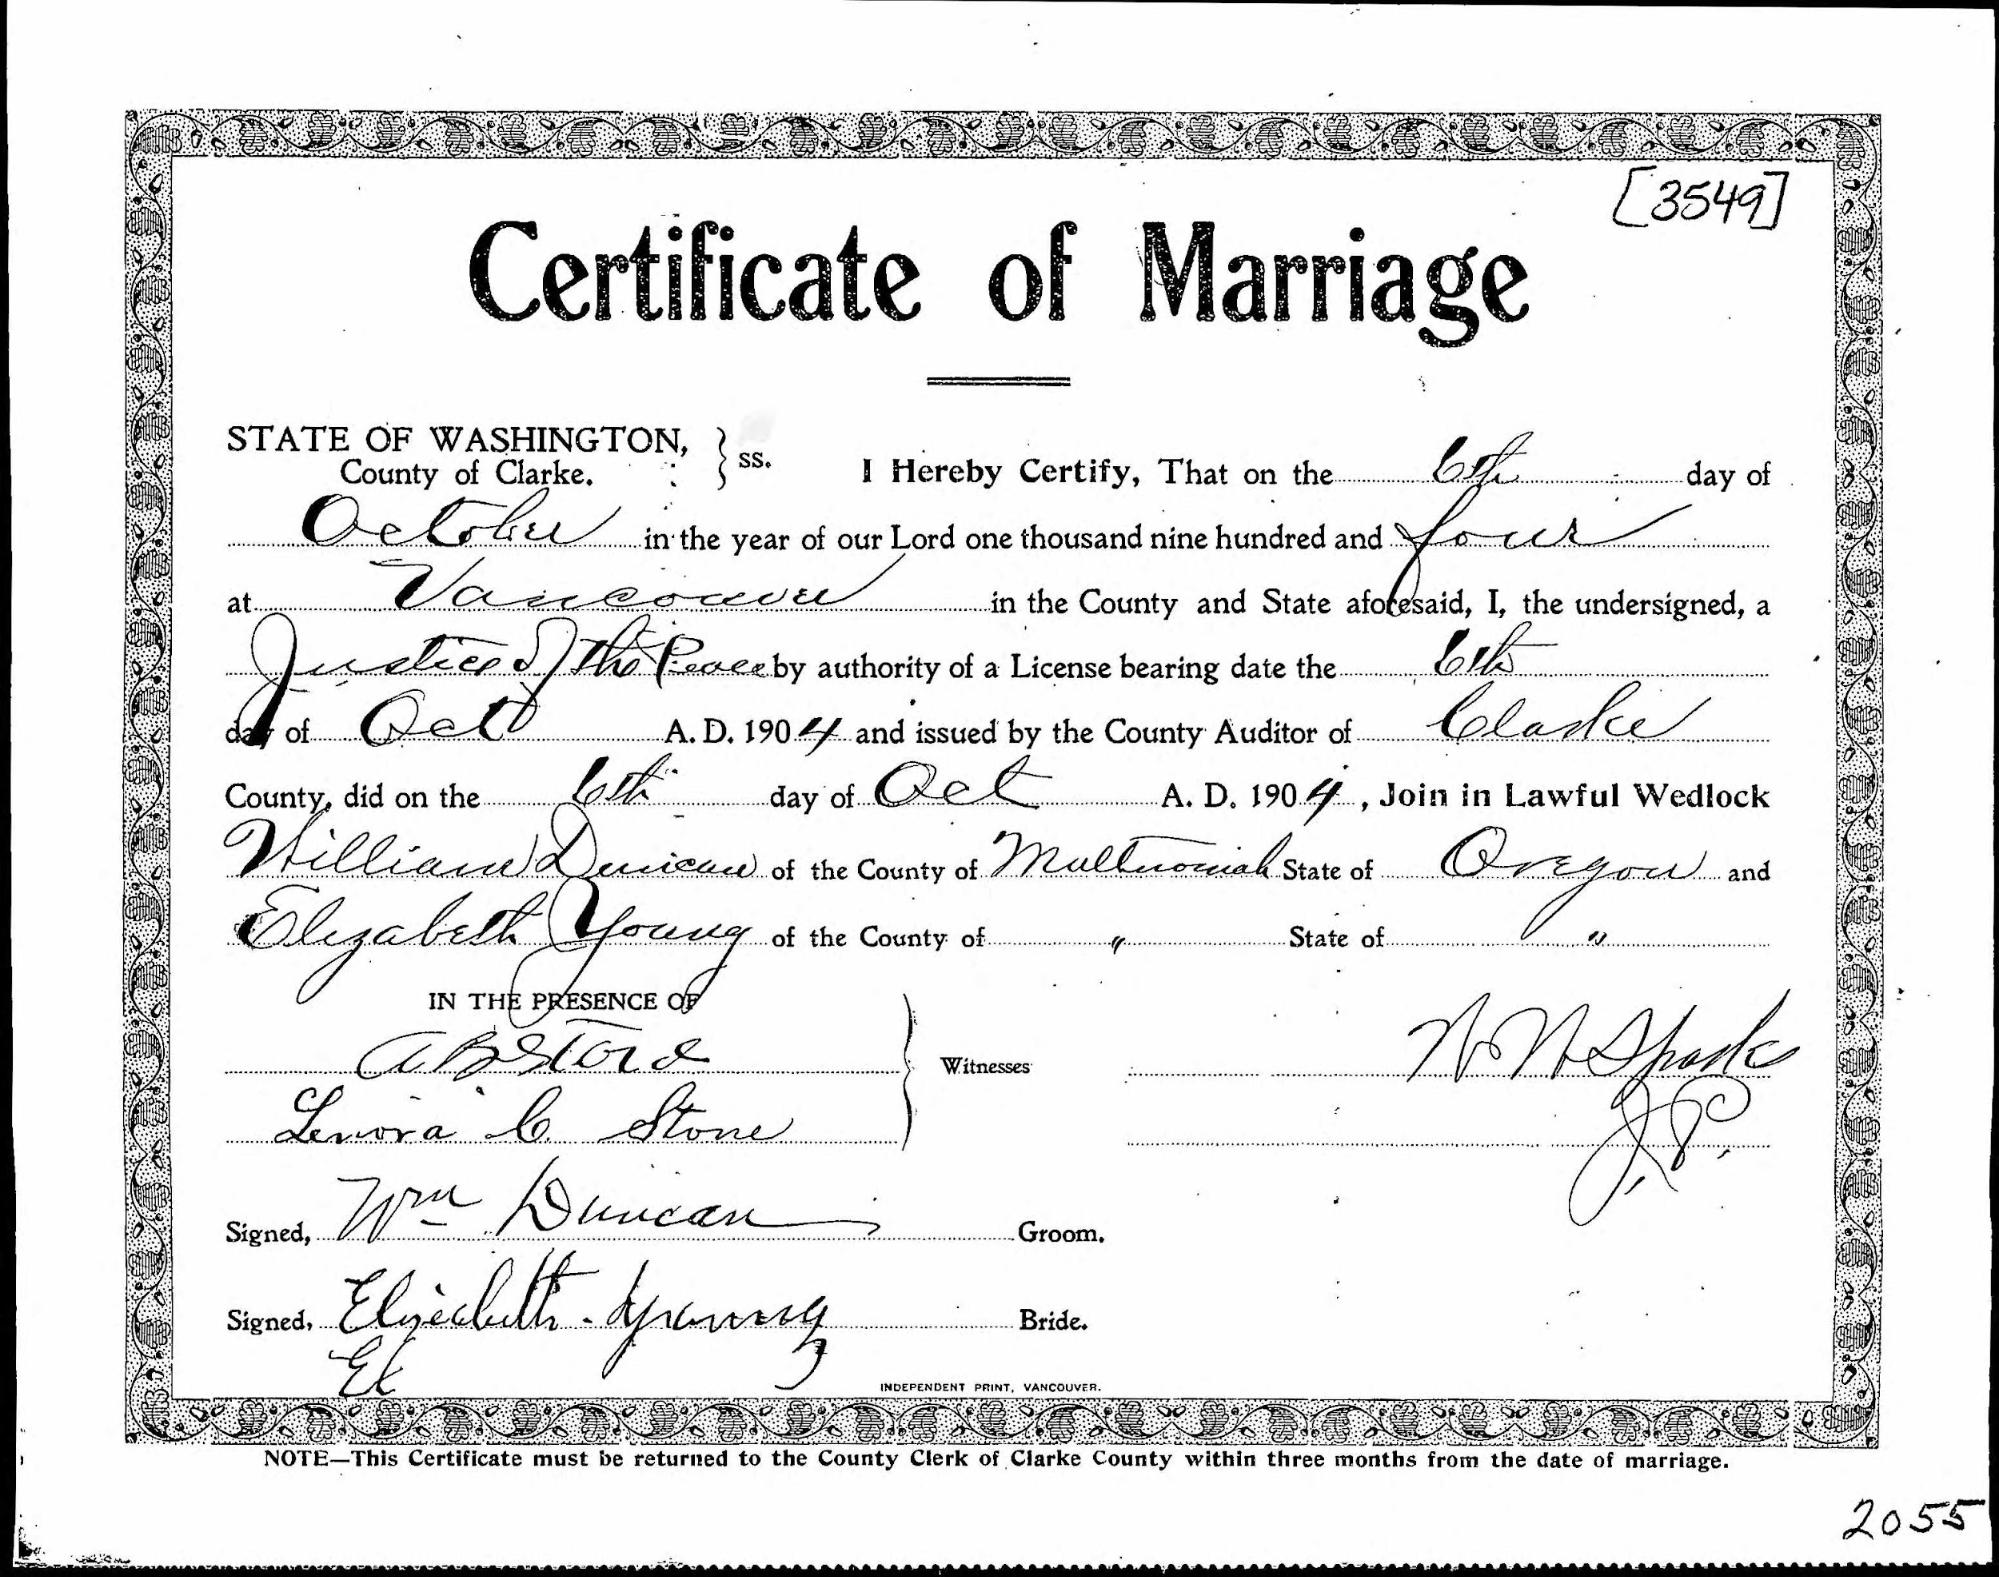 [3549]
Certificate of Marriage
STATE OF WASHINGTON, } ss.
County of Clarke.
I Hereby Certify, That on the 6th day of
October in the year of our Lord one thousand nine hundred and four
at Vancouver in the County and State aforesaid, I, the undersigned, a
Justice of the Peace by authority of a License bearing date the 6th
day of Oct A. D. 1904 and issued by the County Auditor of Clarke
County, did on the 6th day of Oct A. D. 1904, Join in Lawful Wedlock
William Duncan of the County of Multnomah State of Oregon and
Elizabeth Young of the County of " State of "
IN THE PRESENCE OF
A B Stone
Witnesses
Lenora C. Stone
Sparks
J.P.
Signed, Wm Duncan Groom.
Signed, Elizabeth Young Bride.
El
INDEPENDENT PRINT, VANCOUVER.
NOTE—This Certificate must be returned to the County Clerk of Clarke County within three months from the date of marriage.
2055